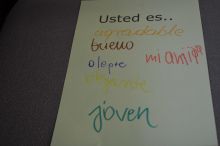 Usted es..
agradable
bueno
mi amiga
alegre
elegante
joven